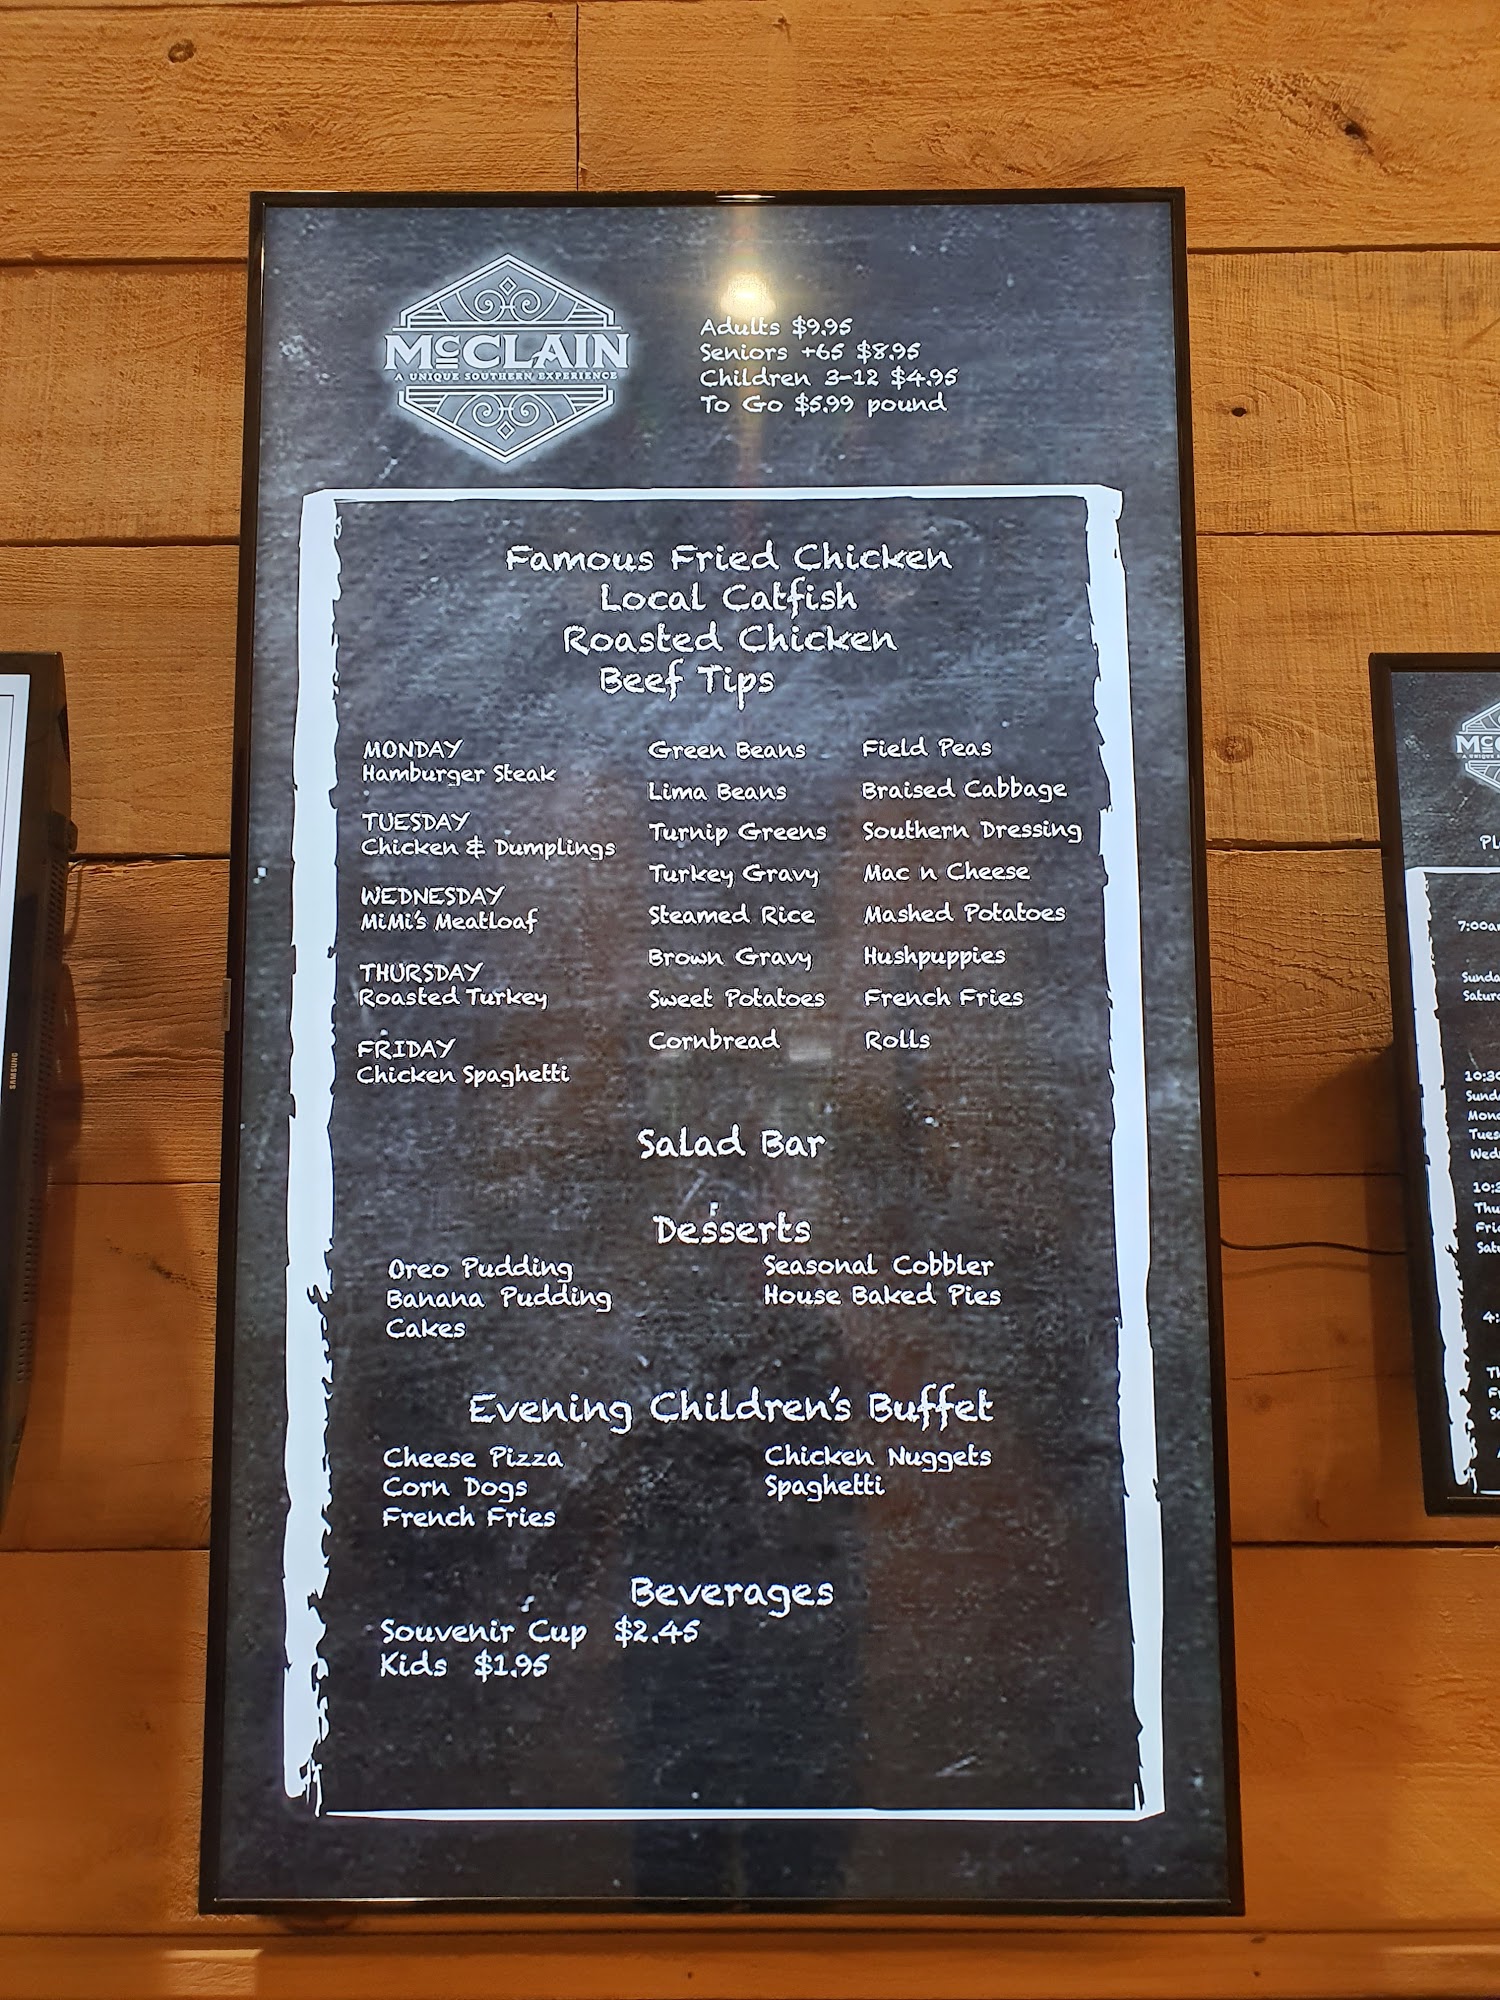 McCLAIN
A UNIQUE SOUTHERN EXPERIENCE
Adults $9.95
Seniors +65 $8.95
Children 3-12 $4.95
To Go $5.99 pound
Famous Fried Chicken
Local Catfish
Roasted Chicken
Beef Tips
MONDAY
Hamburger Steak
TUESDAY
Chicken & Dumplings
WEDNESDAY
MiMi's Meatloaf
THURSDAY
Roasted Turkey
FRIDAY
Chicken Spaghetti
Green Beans
Lima Beans
Turnip Greens
Turkey Gravy
Steamed Rice
Brown Gravy
Sweet Potatoes
Cornbread
Field Peas
Braised Cabbage
Southern Dressing
Mac n Cheese
Mashed Potatoes
Hushpuppies
French Fries
Rolls
Salad Bar
Desserts
Oreo Pudding
Banana Pudding
Cakes
Seasonal Cobbler
House Baked Pies
Evening Children's Buffet
Cheese Pizza
Corn Dogs
French Fries
Chicken Nuggets
Spaghetti
Beverages
Souvenir Cup $2.45
Kids $1.95
SAMSUNG